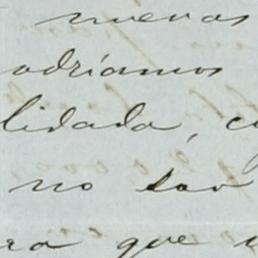 nuevas
odríamos
lidada, c
no son
ra que